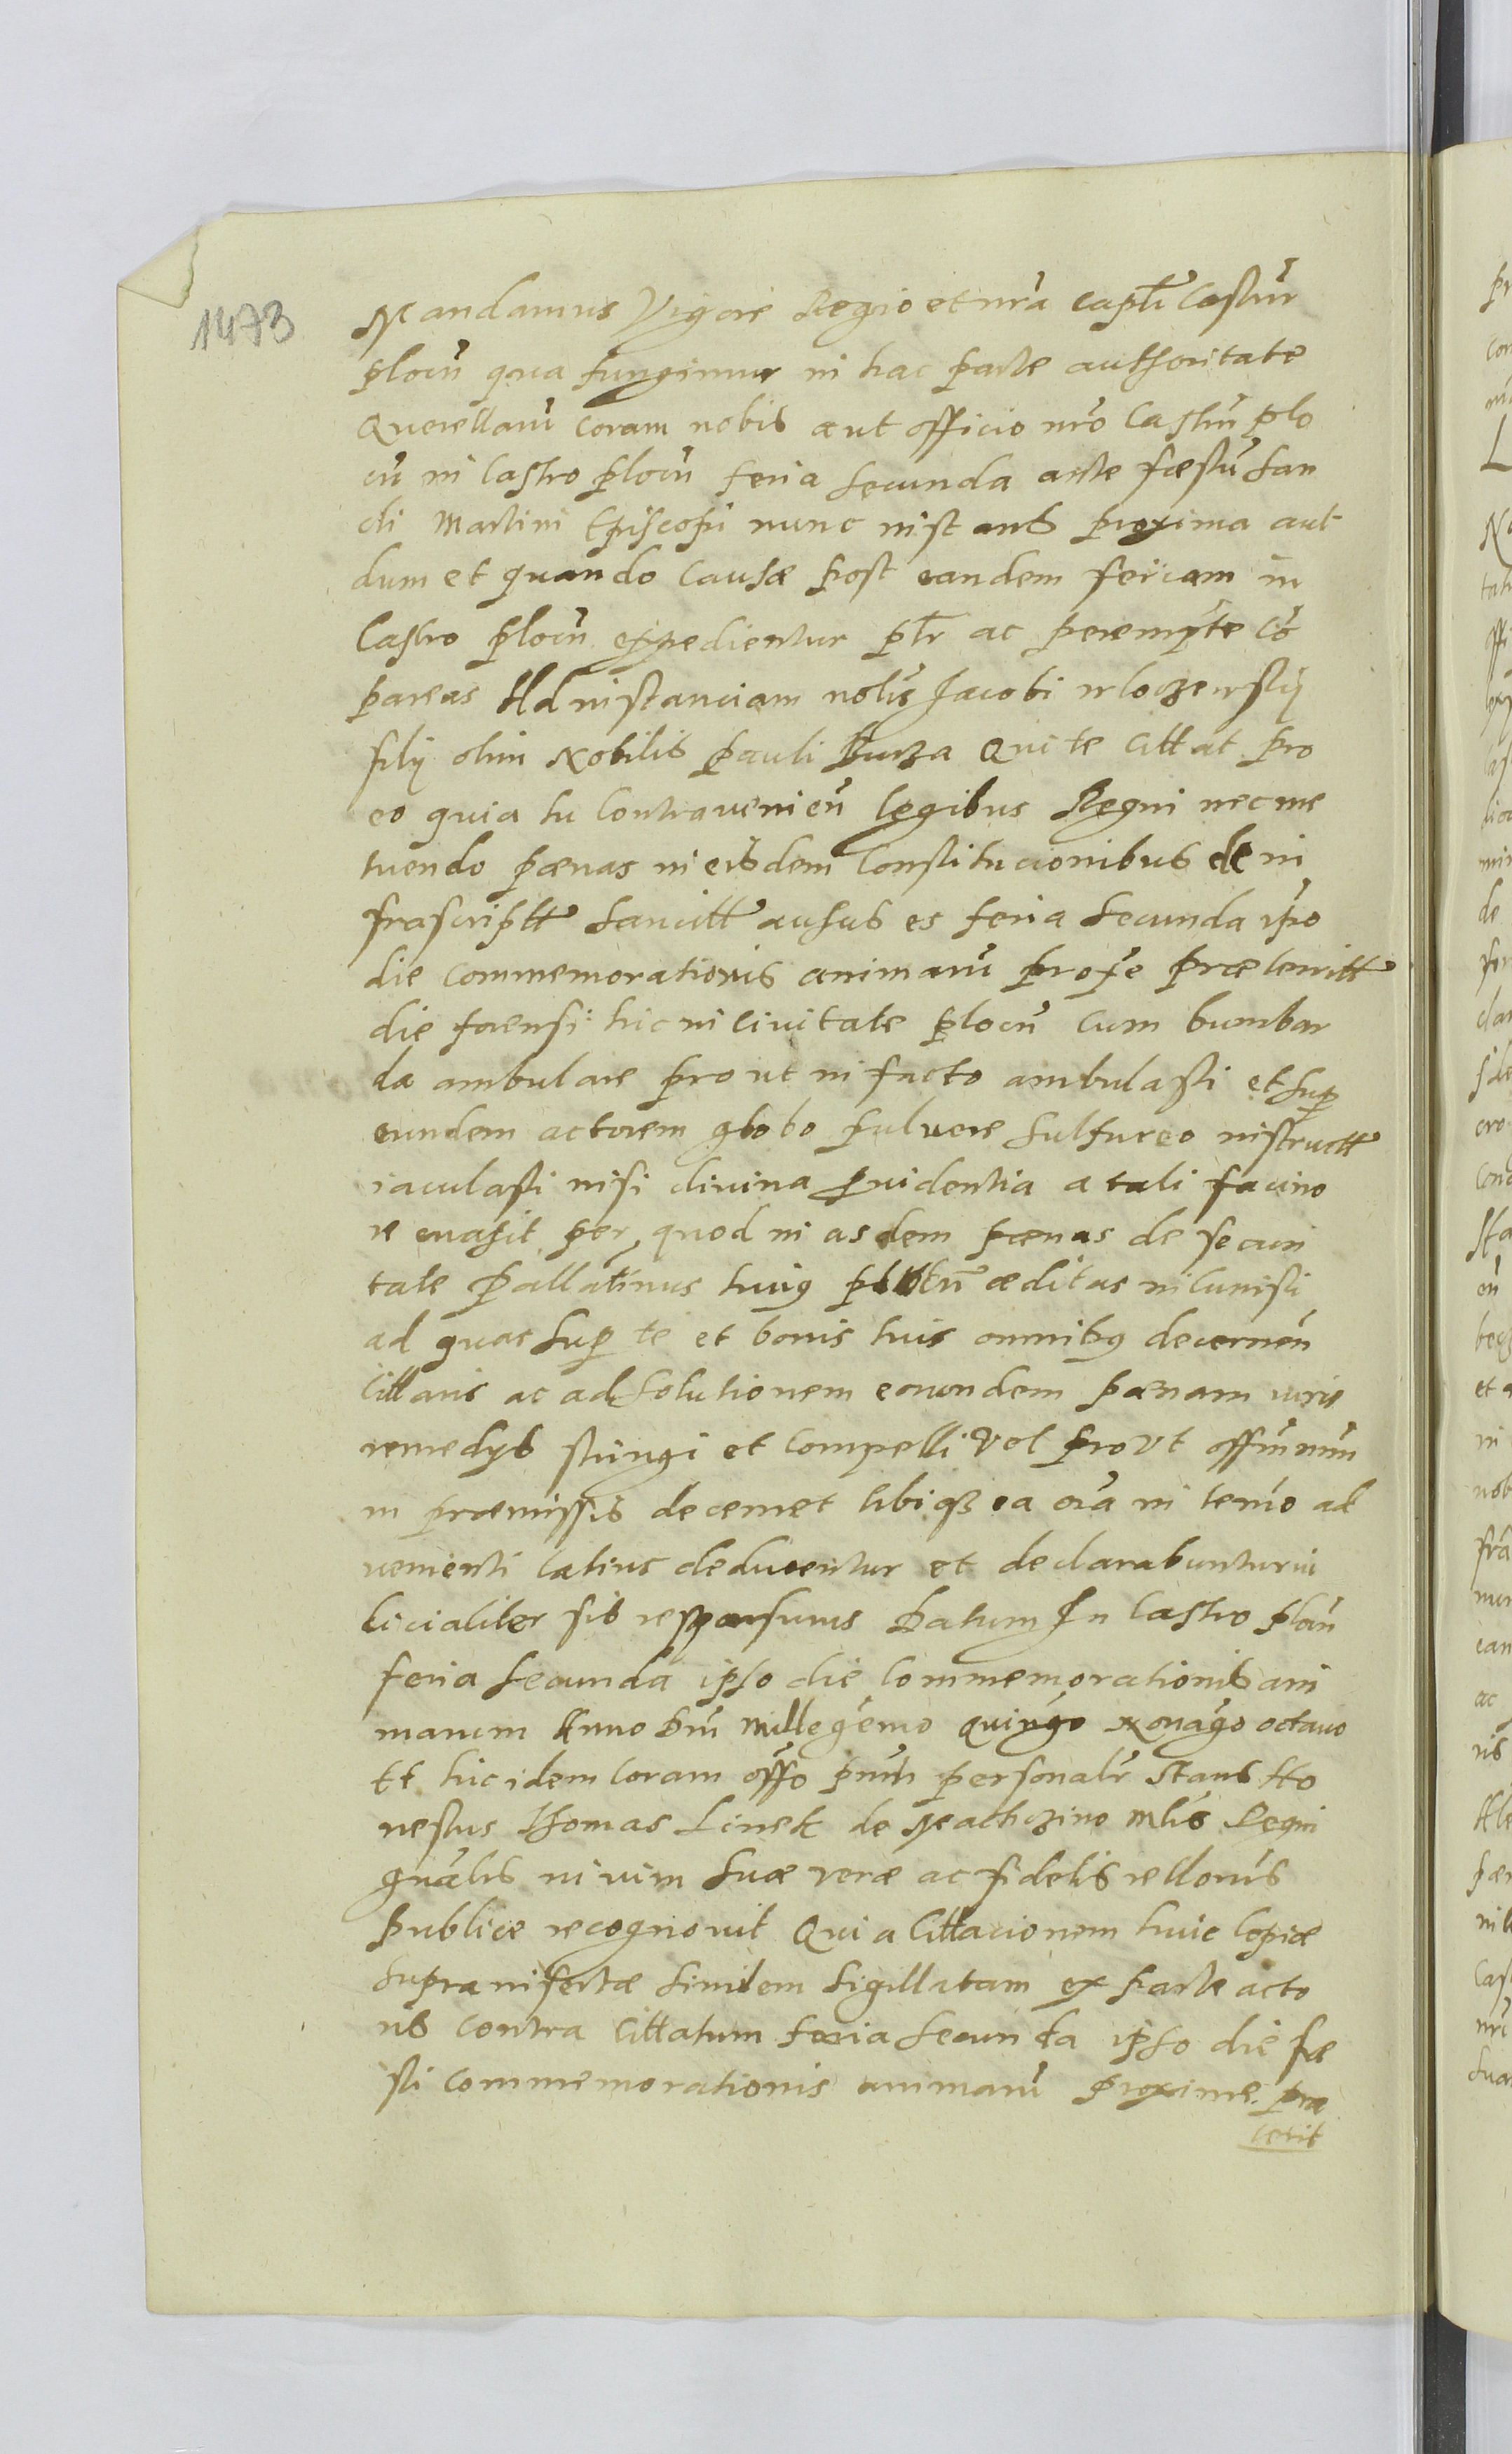 1473
Mandamus Vigore Regio et nr̃a captli Castrn̄
plocn̄ qua fungimur in hac parte authoritate
Querellarū coram nobis aut officio nr̃o Castrn̄ plo
cn̄ in Castro plocn̄ feria secunda ante fæstū San
cti Martini Episcopi nunc instants proxima aut
dum et quando Causæ post eandem feriam in
Castro plocn̄ expedientur ptr ac perempte cō
pareas Ad instanciam nobīs Jacobi
filij olim Nobilis Pauli Qui te Cittat pro
eo quia tu Contravenien̄ legibus Regni nec me
tuendo pænas in eisdem Constitucionibus de in
frascriptt sancitt ausus es feria secunda ipso
die commemorationis animarū proxe præteritt
die forensi hic in Civitate plocn̄ cum bumbar
da ambulare prout in facto ambulasti et sup
eundem actorem globo pulvere sulfureo instructt
iaculasti nisi divina providentia a tali facino
re evasit per quod in asdem pænas de securi
tate Pallatinus huius æditas incurristi
ad quas sup te et bonis tuis omnibq decernen̄
Cittaris ac ad solutionem earundem pænam iuris
remedys stringi et compelli vel prout offm̄ nrm̄
in præmissis decernet tibiqz ea oīa in termo ad
venienti latius deducentur et declarabuntur iu
dicialiter sis responsurus Datum In Castro plocn̄
feria secunda ipso die Commemorationis ani
marum Anno Dni Millegēmo quingo Nonagō octavo
Et hic idem Coram offo pnti personalr stans Ho
nestus Thomas Linek de mlis Regni
gnālis in vim suæ veræ ac fidelis rellonis
publice recognovit Quia Cittacionem huic Copiæ
supra insertæ similem sigillatam ex parte acto
ris contra Cittatum feria secunda ipso die fæ
sti commemorationis animarū proxime præ
terit